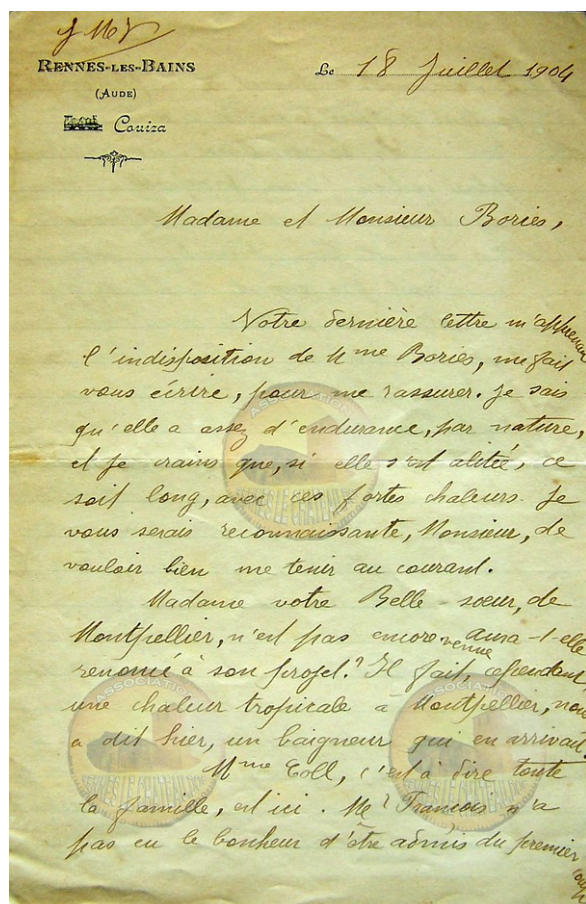 J M J
RENNES-LES-BAINS
(AUDE)
Couiza
Le 18 Juillet 1904
Madame et Monsieur Bories,
Votre dernière lettre m'apprenant
l'indisposition de Mme Bories, me fait
vous écrire, pour me rassurer. Je sais
qu'elle a assez d'endurance, par nature,
et je crains que, si elle s'est alitée, ce
soit long, avec ces fortes chaleurs. Je
vous serais reconnaissante, Monsieur, de
vouloir bien me tenir au courant.
Madame votre Belle-sœur, de
Montpellier, n'est pas encore venue Aura-t-elle
renoncé à son projet? Il fait, cependant
une chaleur tropicale a Montpellier, nous
a dit hier, un baigneur qui en arrivait.
Mme Coll, c'est à dire toute
la famille, est ici. Mr François n'a
pas eu le bonheur d'être admis du premier
coup
ASSOCIATION
RENNES LE CHATEAU
ASSOCIATION
RENNES LE CHATEAU
ASSOCIATION
RENNES LE CHATEAU